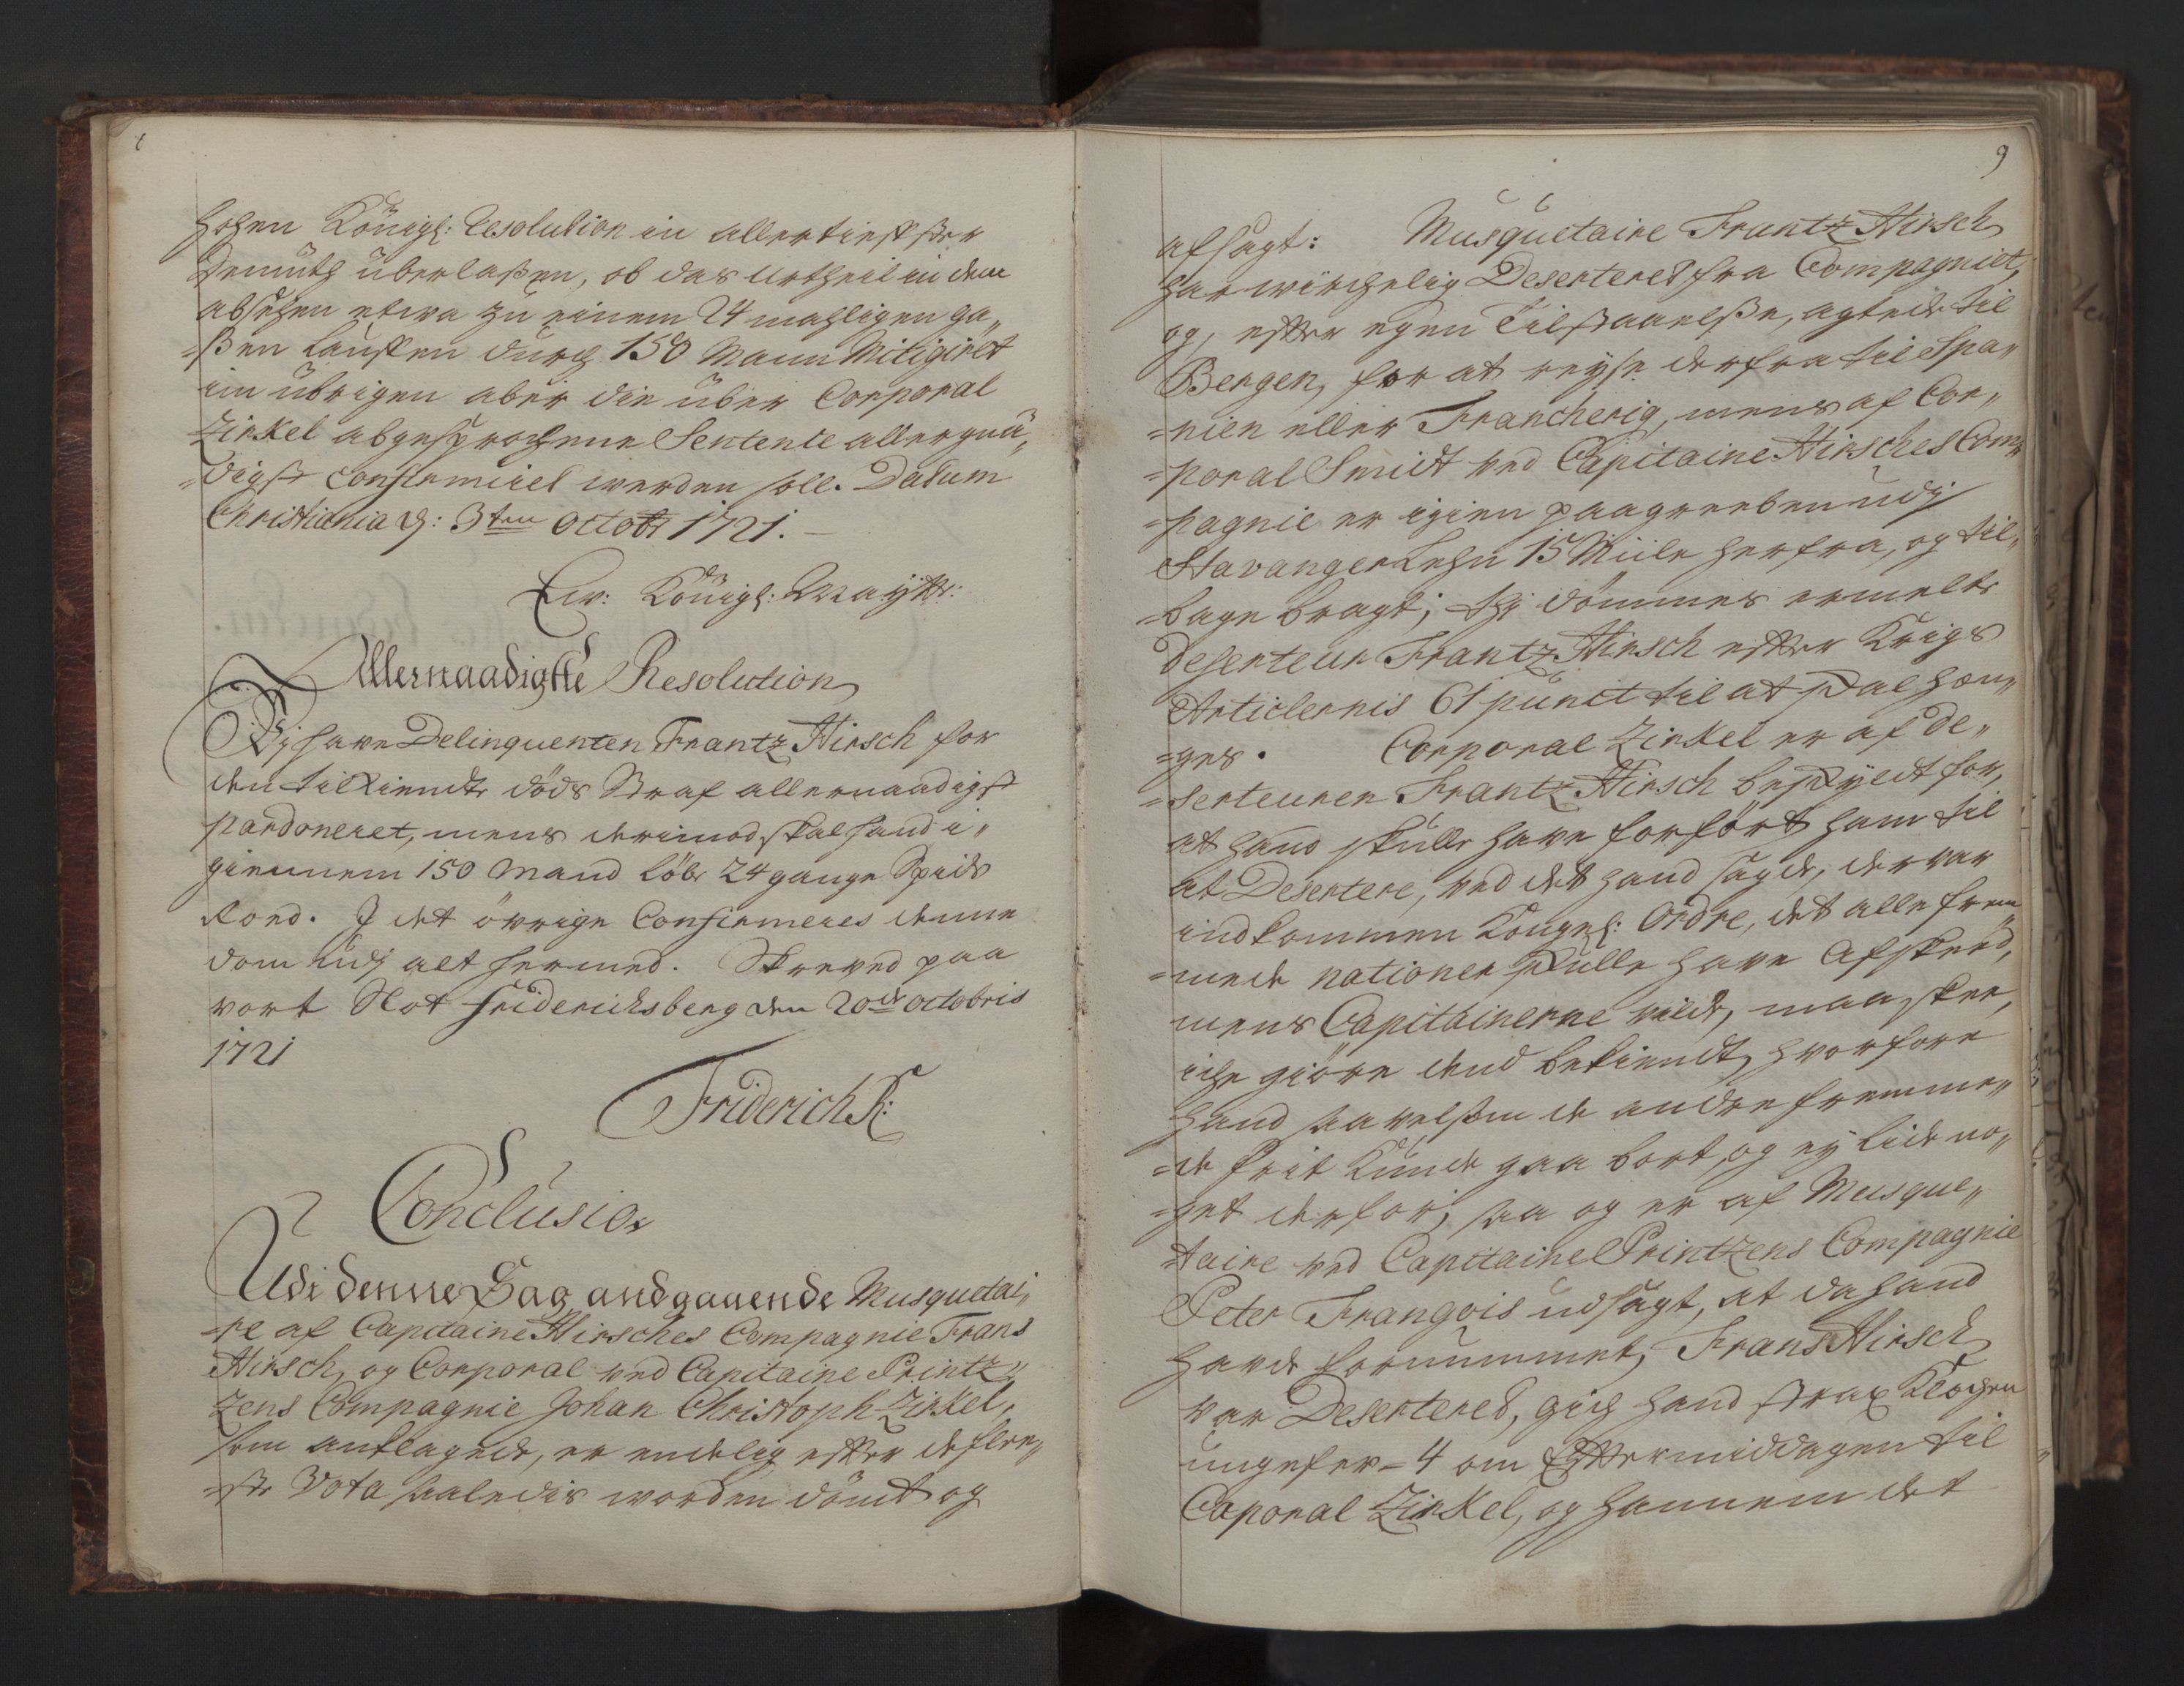 hohen Königl: Resolution in allertieffster
Demuth überlaßen, ob das Urtheil in dem
absehen etwa zu einem 24 mahligen ga„
=ßen lauffen durch 150 Mann Mitigiret
im übrigen aber die über Corporal
Zirkel abgesprochene Sentente allergnä„
=digst confirmiret werden soll. Datum
Christiania d: 3ten Octobr 1721.
Ew: Königl: Mayttr:
Allernaadigste Resolution
Vj have Delinquenten Frantz Hirsch for
den tilkiendte döds Straf allernaadigst
pardoneret, mens derimod skal hand i„
giennem 150 Mand löbe 24 gange Spids
Rod. I det övrige Confirmeres denne
dom udj alt hermed. Skreved paa
vort Slot Friderichsberg den 20de Octobris
1721
Friderich R:
Conclusio.
Udi denne Sag andgaaende Musquetai„
=re af Capitaine Hirsches Compagnie Frans
Hirsch, og Corporal ved Capitaine Printz„
zens Compagnie Johan Christoph Zirkel,
som anklagede, er endelig efter de fle„
=ste Vota saaledis worden dömt og
9
afsagt: Musquetaire Frantz Hirsch
har wirchelig Deserteret fra Compagniet,
og, efter egen Tilstaaelße, agtede til
Bergen, for at reyse derfra til Spa„
=nien eller Francherig, mens af Cor„
=poral Smidt ved Capitaine Hirsches Com„
=pagnie er igien paagreeben udj
Stavanger Lehn 15 Miile herfra, og til„
=bage bragt; thj dömmes ermelte
Deserteur Frantz Hirsch efter Krigs
Articlernis 61 punct til at skal hen„
=ges. Corporal Zirkel er af De„
=serteuren Frantz Hirsch beskyldt for,
at hand skulle have forfört ham til
at Desertere, ved det hand sagde, der var
indkommen Kongel: Ordre, det alle frem„
=mede nationer skulle have Afskeed,
mens Capitainerne vilde, maa skee,
iche giöre dend bekiendt, hvorfore
hand saavelsom de andre fremme„
=de frit kunde gaa bort, og ey lide no„
=get derfor; saa og er af Musque„
taire ved Capitaine Printzens Compagnie
Peter Frangois udsagt, at da hand
havde fornummet, Frans Hirsch
var Deserteret, gich hand strax Klochen
ungefer = 4 om Eftermiddagen til
Caporal Zirkel, og hannem det